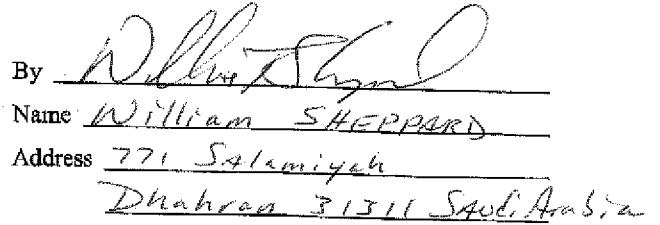 By
Name William SHEPPARD
Address 771 Salamiyah
Dhahran 31311 Saudi Arabia